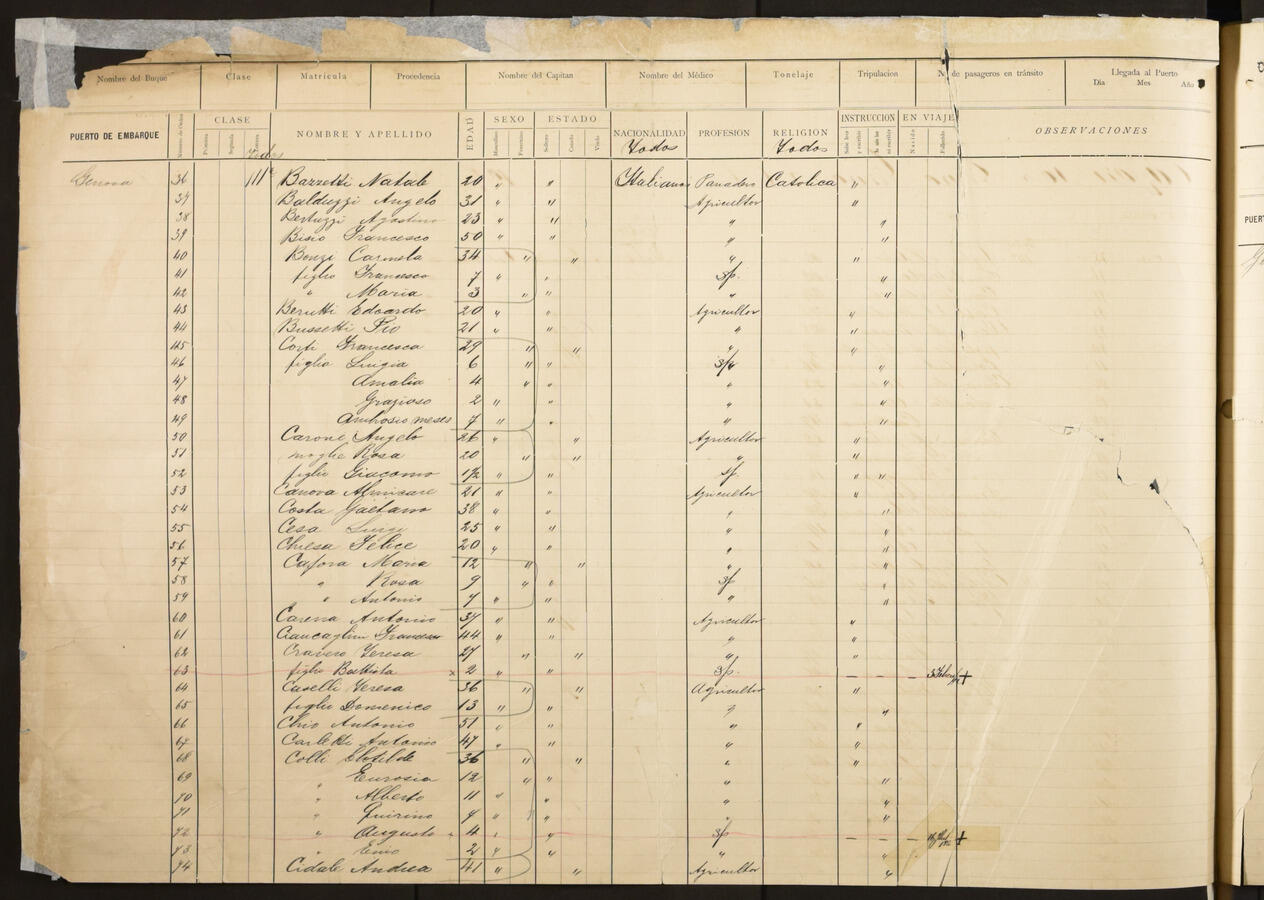 Nombre del Buque Clase Matricula Procedencia Nombre del Capitan Nombre del Médico Tonelaje Tripulacion N.º de pasageros en tránsito Llegada al Puerto
Dia Mes Año
PUERTO DE EMBARQUE Número de Orden CLASE NOMBRE Y APELLIDO EDAD SEXO ESTADO NACIONALIDAD PROFESIÓN RELIGION INSTRUCCION EN VIAJE OBSERVACIONES
Primera Segunda Tercera Masculino Femenino Soltero Casado Viudo Sabe leer y escribir Nacido Fallecido
Todos Todos
Genova 36 III Bazzetti Natale 20 " " Italianos Panadero Catolica "
37 Balduzzi Angelo 31 " " Agricultor "
38 Bertuzzi Agostino 23 " " " "
39 Bisio Francesco 50 " " " "
40 Bonzi Carmela 34 " " " "
41 figlio Francesco 7 " " s/p. "
42 " Maria 3 " " " "
43 Berutti Edoardo 20 " " Agricultor "
44 Bussetti Pio 21 " " " "
45 Corti Francesca 29 " " " "
46 figlia Luigia 6 " " s/p "
47 Amalia 4 " " " "
48 Grazioso 2 " " " "
49 Ambrosio meses 7 " " " "
50 Carone Angelo 26 " " Agricultor "
51 moglie Rosa 20 " " " "
52 figlio Giacomo 1½ " " s/p. " "
53 Canova Almicare 21 " " Agricultor "
54 Costa Gaetano 38 " " " "
55 Cesa Luigi 25 " " " "
56 Chiesa Felice 20 " " " "
57 Maria 12 " " " "
58 " Rosa 9 " " s/p "
59 " Antonio 7 " " " "
60 Carena Antonio 37 " " Agricultor "
61 Francesco 44 " " " "
62 Cravero Teresa 27 " " " "
63 figlio Battista x 2 " " s/p. – – – +
64 Caselli Teresa 36 " " Agricultor "
65 figlio Domenico 13 " " " "
66 Chio Antonio 51 " " " "
67 Carletti Antonio 47 " " " "
68 Colli Clotilde 36 " " " "
69 " Eurosia 12 " " " "
70 " Alberto 11 " " " "
71 " Quirino 7 " " " "
72 " Augusto 4 " " s/p – – – +
73 " Emo 2 " " " "
74 Cidale Andrea 41 " " Agricultor "